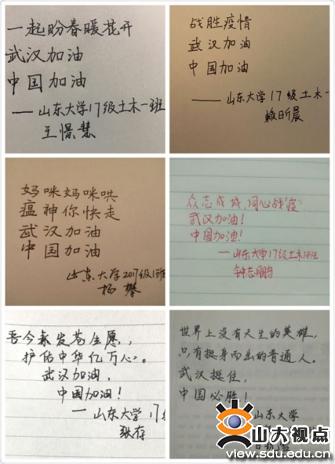 一起盼春暖花开
武汉加油
中国加油
——山东大学17级土木一班
王憬慧
战胜疫情
武汉加油
中国加油
——山东大学17级土木一
妈咪妈咪哄
瘟神你快走
武汉加油
中国加油
山东大学2017级1班
杨攀
众志成城,同心战疫
武汉加油!
中国加油!
——山东大学17级土木1班
吾今来发苍生愿,
护佑中华亿万人。
武汉加油,
中国加油!
——山东大学17
世界上没有天生的英雄,
只有挺身而出的普通人。
武汉挺住,
中国必胜!
山东大学
山大视点
www.view.sdu.edu.cn